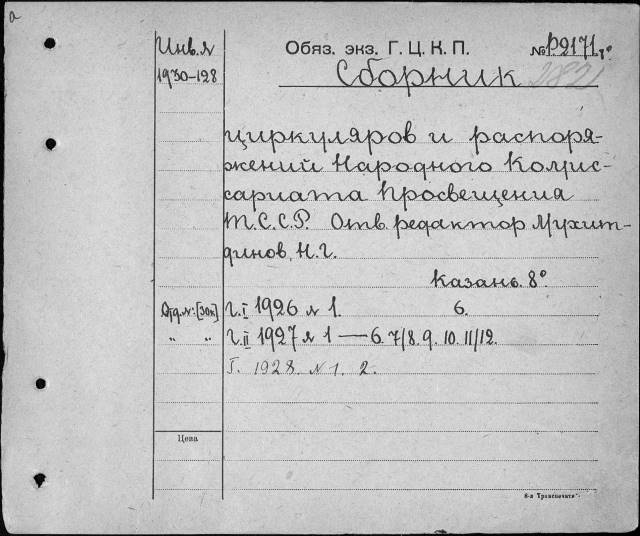 а
Инв. №
Обяз. экз. Г. Ц. К. П.
№ Р2171 г°
1930-128
Сборник
2821
циркуляров и распоря-
жений Народного Комис-
сариата Просвещения
Т.С.С.Р. Отв. редактор Мухит-
динов, Н.Г.
Казань. 8°
Отд. №: [Зок] Г. I 1926 № 1. 6.
" " Г. II 1927 № 1 — 6. 7/8. 9. 10. 11/12.
Г. 1928. № 1. 2.
Цена